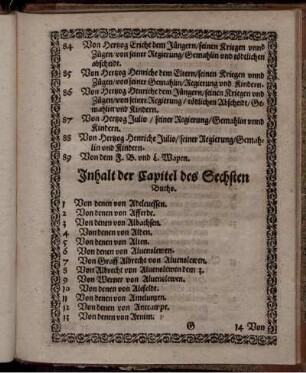 84 Von Hertzog Ericht dem Jüngern / seinen Kriegen vnnd
Zügen / von seiner Regierung / Gemahlin vnd tödtlichen
abscheidt.
85 Von Hertzog Henriche dem Eltern / seinen Kriegen vnnd
Zügen / von seiner Gemahlin / Regierung vnd Kindern.
86 Von Hertzog Henriche dem Jüngern / seinen Kriegen vnd
Zügen / von seiner Regierung / tödtlichen Abscheidt / Ge-
mahlin vnd Kindern.
87 Von Hertzog Julio / seiner Regierung / Gemahlin vnnd
Kindern.
88 Von Hertzog Henriche Julio / seiner Regierung / Gemah-
lin vnd Kindern.
89 Von dem F. B. vnd L. Wapen.
Inhalt der Capitel des Sechsten
Buchs.
1 Von denen von Adeleuessen.
2 Von denen von Afferde.
3 Von denen von Albachsen.
4 Von denen von Alden.
5 Von denen von Alten.
6 Von denen von Aluenslewen.
7 Von Graff Albrecht von Aluenslewen.
8 Von Albrecht von Aluenslewen dem 3.
9 Von Werner von Aluenslewen.
10 Von denen von Alefeldt.
11 Von denen von Amelungen.
12 Von denen von Antecampt.
13 Von denen von Arnim.
G 14 Von